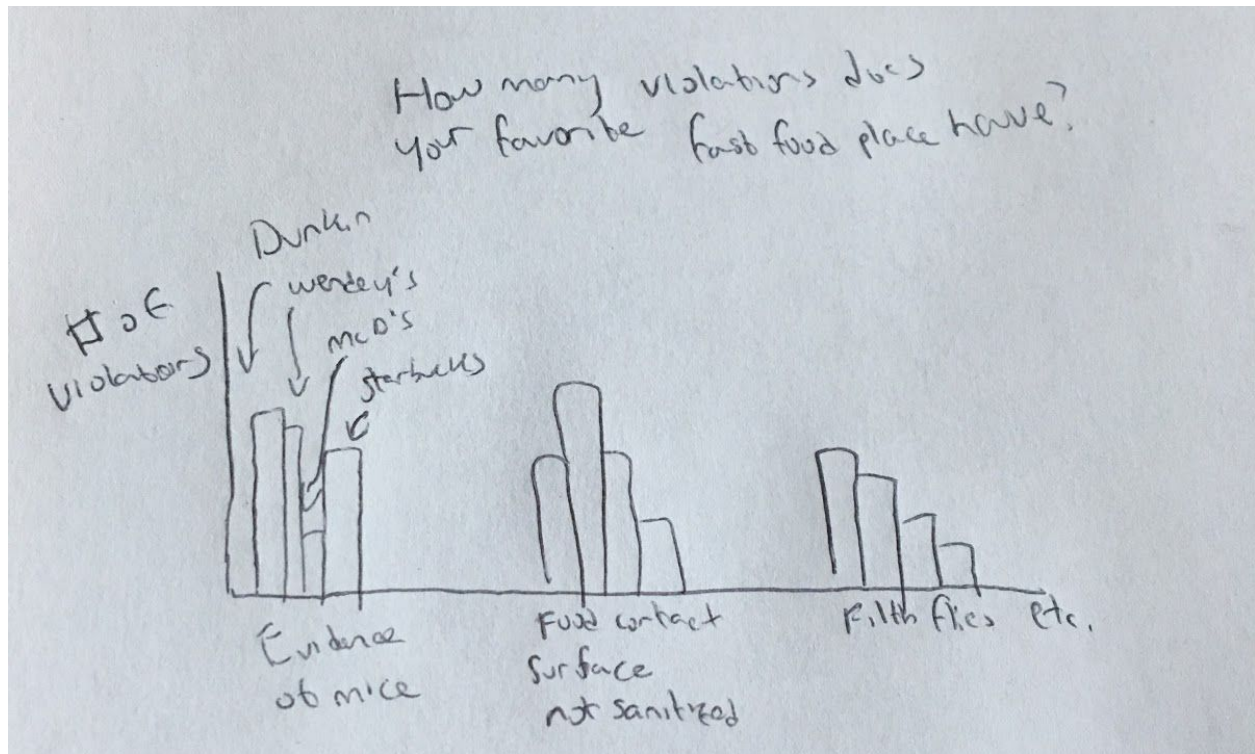 How many violations does
your favorite fast food place have?
Dunkin
Wendy's
McD's
Starbucks
# of
violations
Evidence
of mice
Food contact
surface
not sanitized
Filth flies etc.